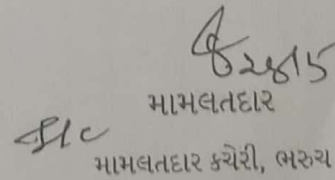 મામલતદાર
મામલતદાર કચેરી, ભરુચ